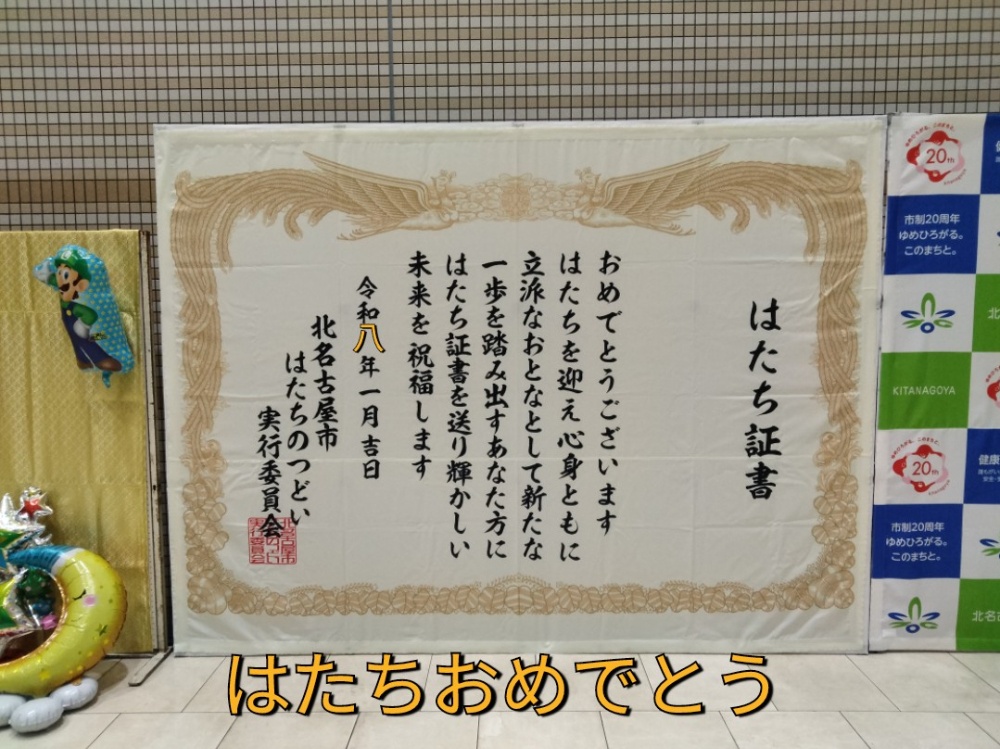 はたち証書
おめでとうございます
はたちを迎え心身ともに
立派なおとなとして新たな
一歩を踏み出すあなた方に
はたち証書を送り輝かしい
未来を祝福します
令和八年一月吉日
北名古屋市
はたちのつどい
実行委員会
20th
市制20周年
ゆめひろがる。
このまちと。
KITANAGOYA
20th
健康
市制20周年
ゆめひろがる。
このまちと。
北名
はたちおめでとう